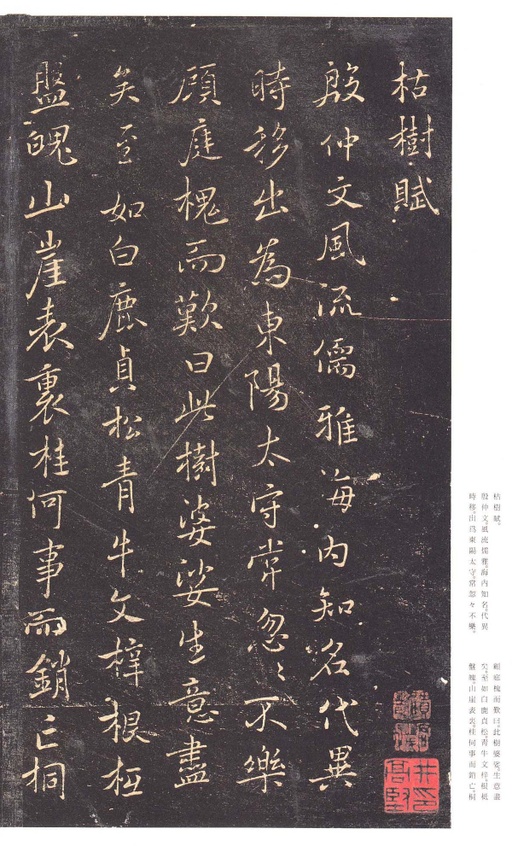 枯樹賦
殷仲文風流儒雅海內知名代異
時移出為東陽太守常忽〻不樂
顧庭槐而歎曰此樹婆娑生意盡
矣至如白鹿貞松青牛文梓根柢
盤魄山崖表裏桂何事而銷亡桐
枯樹賦。
殷仲文。風流儒雅。海內知名。代異
時移。出爲東陽太守。常忽々不樂。
顧庭槐而歎曰。此樹婆娑。生意盡
矣。至如白鹿貞松。青牛文梓。根柢
盤魄。山崖表裏。桂何事而銷亡。桐